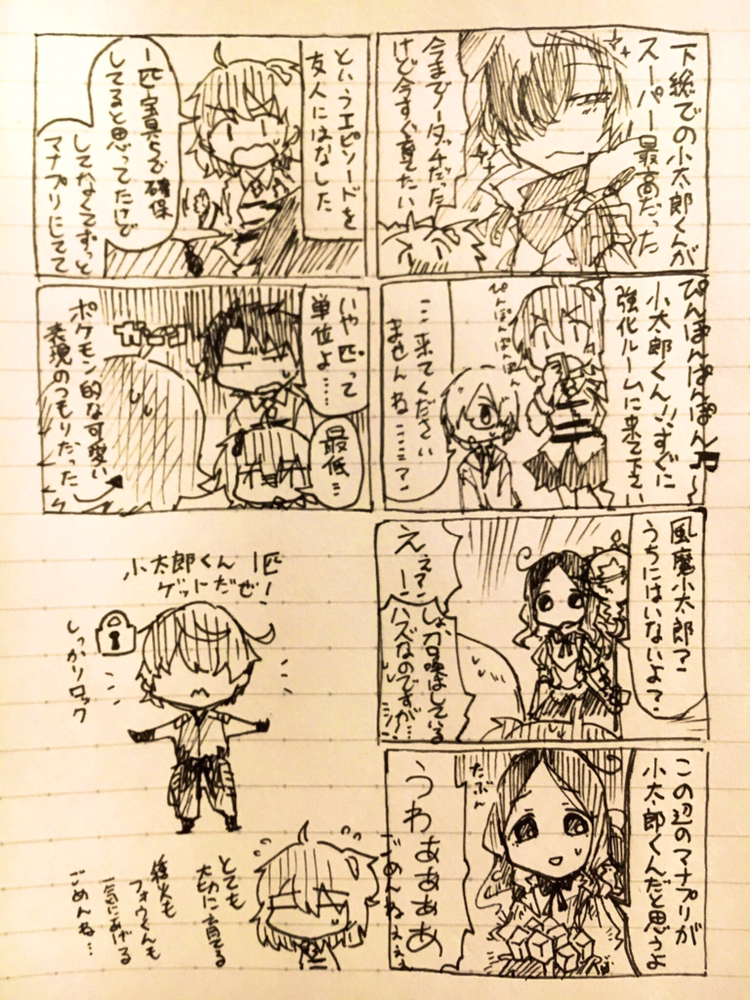 下総での小太郎くんが
スーパー最高だった
今までノータッチだった
けど今すぐ育てたい
ぴんぽんぱんぽん♪
小太郎くん!!すぐに
強化ルームに来て下さい
ぴんぽんぱんぽん
…来てください
ませんね……?
風魔小太郎?
うちにはいないよ?
えぇ?
えー!
しょ、召喚はしている
ハズなのですが…
この辺のマナプリが
小太郎くんだと思うよ
たぶん
うわぁぁぁぁ
ごめんねぇぇぇ
というエピソードを
友人にはなした
一匹宝具らで確保
してると思ってたけど
してなくてずっと
マナプリにしてて
いや匹って
単位よ……
最低…
ガーン
ポケモン的な可愛い
表現のつもりだった
小太郎くん1匹
ゲットだぜ!
しっかりロック
とても
大切に育てる
種火も
フォウくんも
一気にあげる
ごめんね…